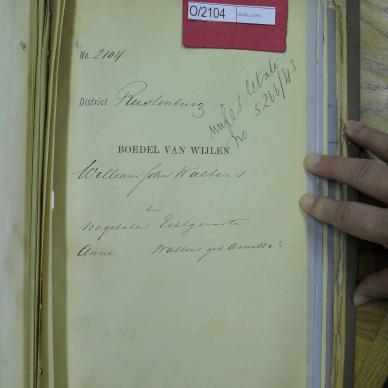 O/2104 WALTERS
No. 2104
District Rustenburg
unified estate
No. 5266/43
BOEDEL VAN WIJLEN
William John Walters
en
Nagelaten Echtgenoote
Anne Walters geb Arnoldi